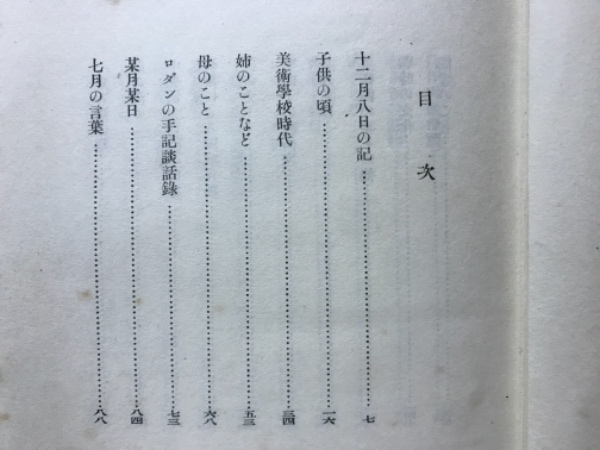 目次
十二月八日の記……………………七
子供の頃……………………一六
美術學校時代……………………三四
姉のことなど……………………五三
母のこと……………………六八
ロダンの手記談話錄……………………七三
某月某日……………………八四
七月の言葉……………………八八